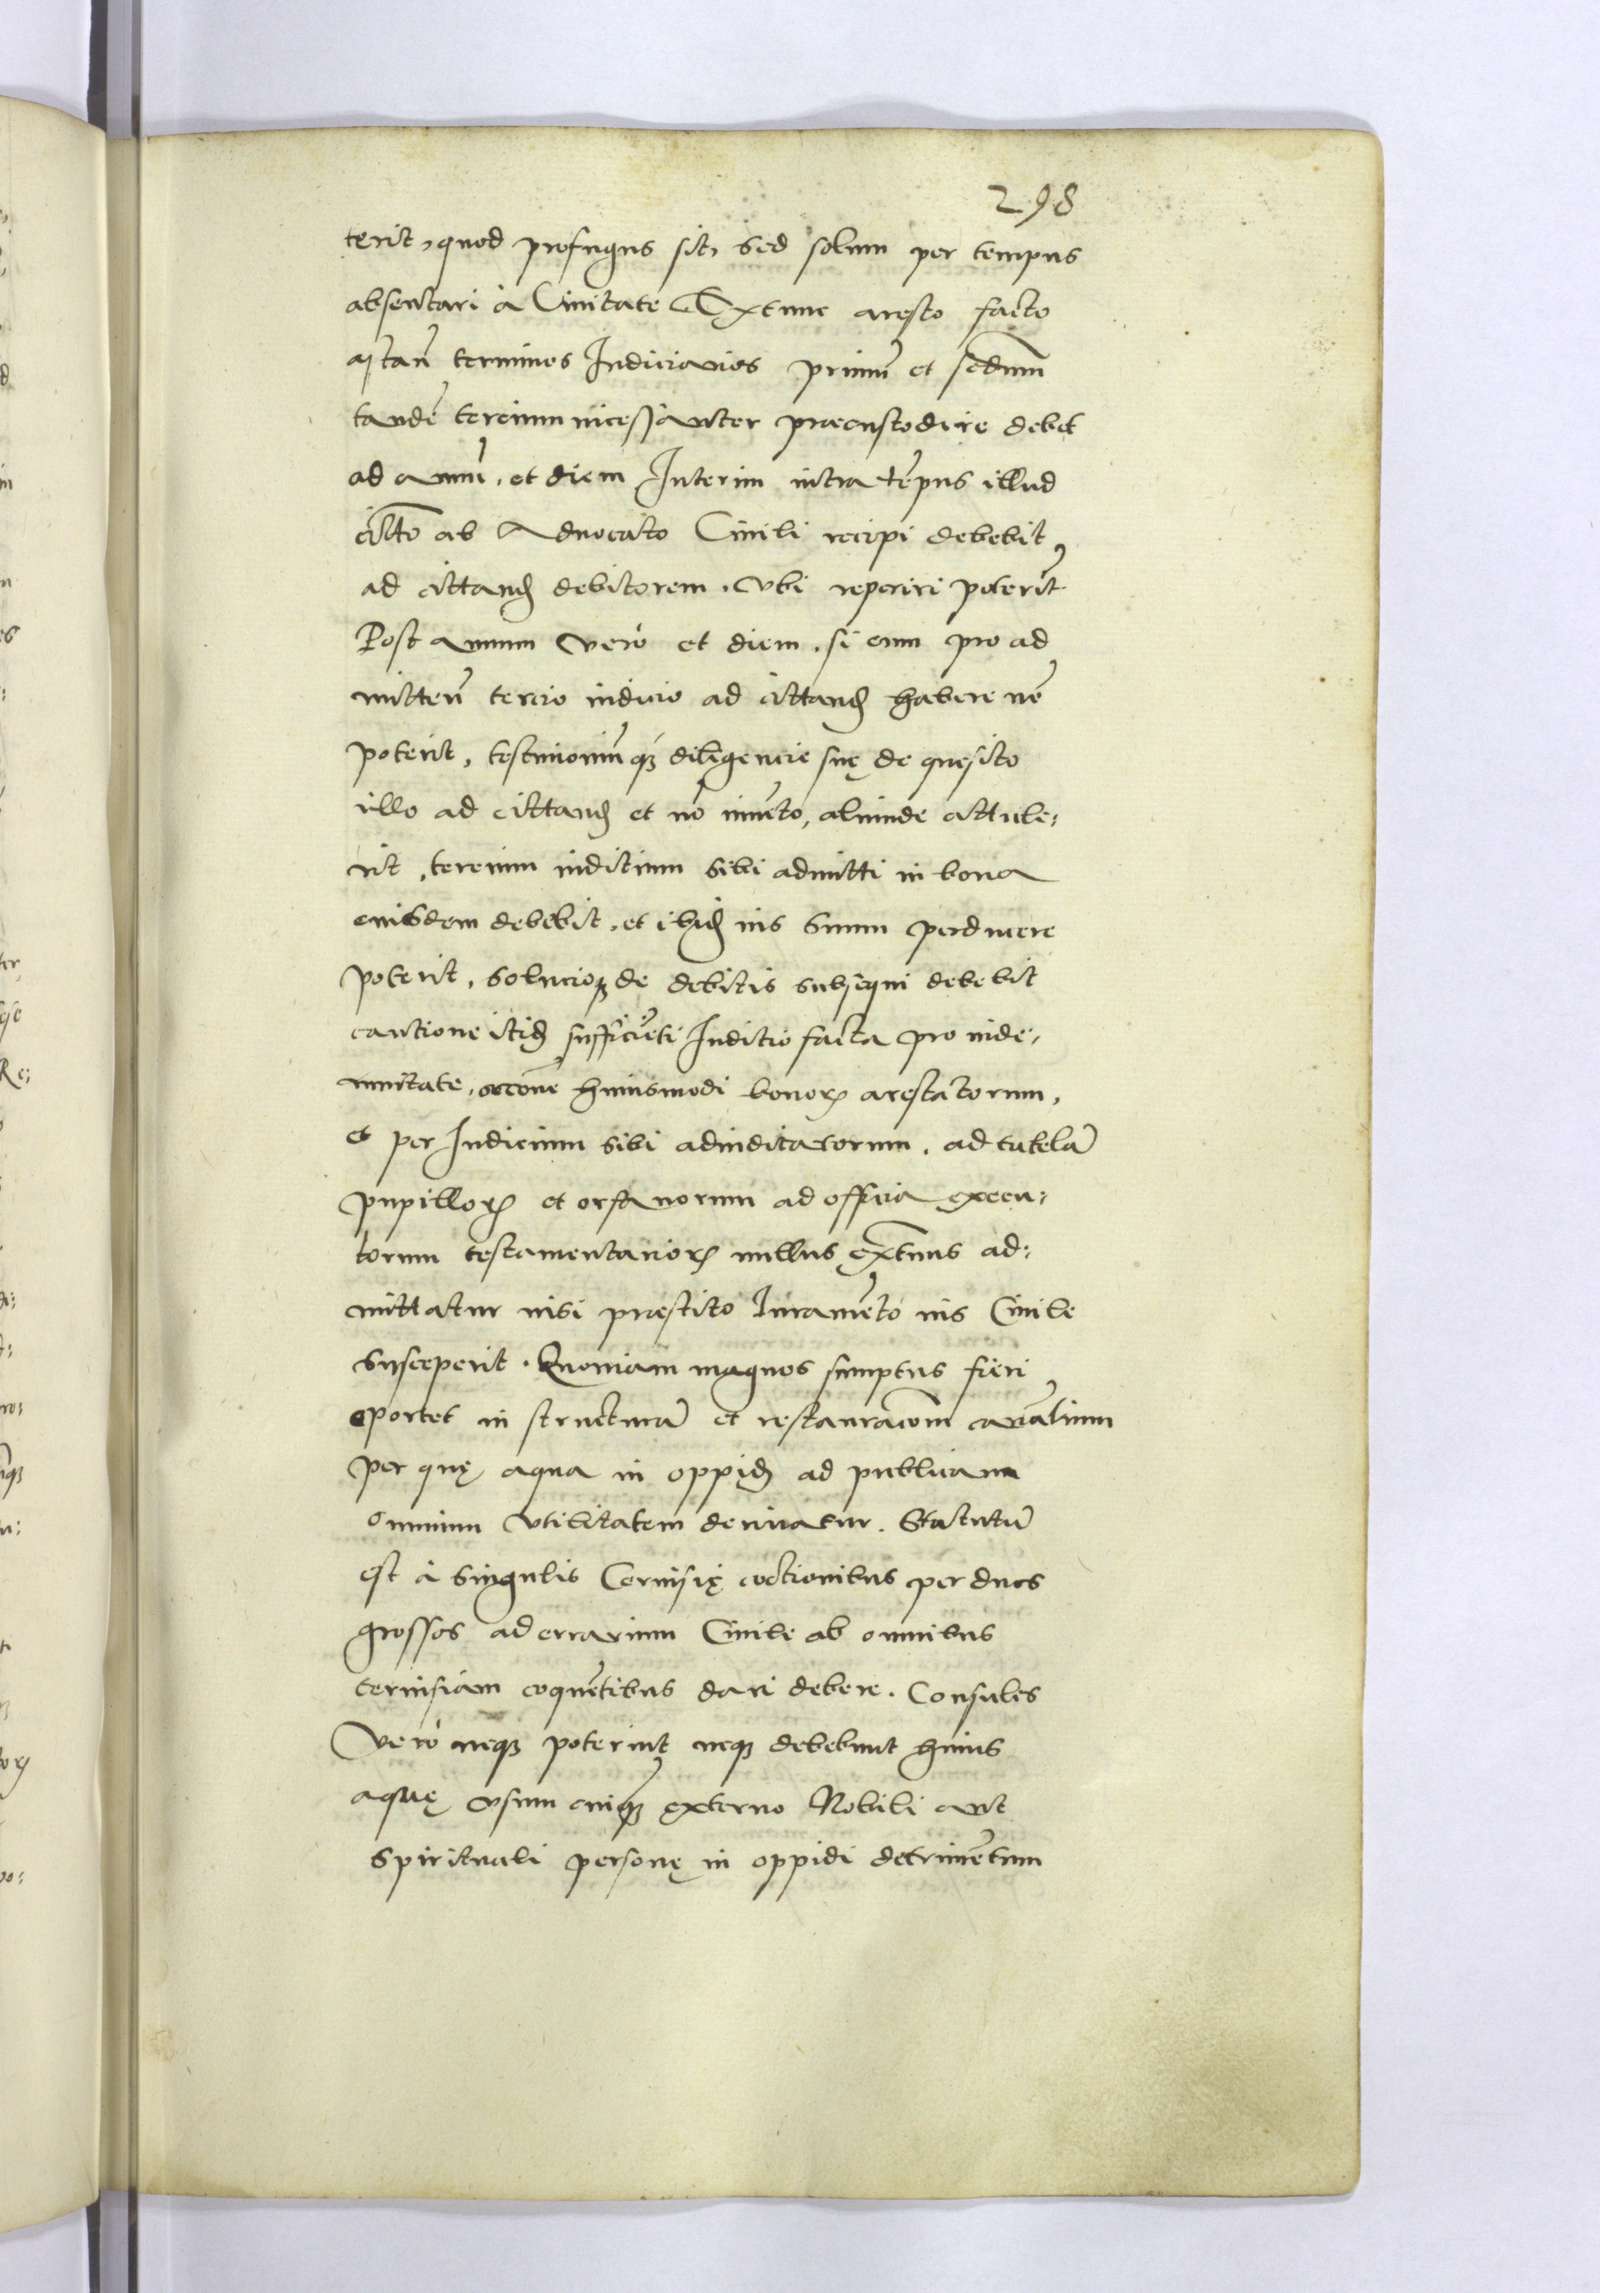 298
terit, quod profugus sit, sed solum per tempus
absentari à Ciuitate Extunc aresto facto
termines Iudiciarios primũ et secdum
tandẽ tercium incessanter praecustodire debet
ad annũ, et diem Interim intra tẽpus illud
ab Aduocato Ciuili recipi debebit,
ad cittand debitorem, vbi reperiri poterit
Post annum verò et diem, si eum pro ad
mitten̄ tercio iudicio ad cittand habere nõ
poterit, testimoniũq; diligencie suę de quesito
illo ad cittand et nõ inuẽto, aliunde attule:
rit, tercium iuditium sibi admitti in bona
eiusdem debebit, et ibid ius suum perducere
poterit, solucioq; de debitis subsequi debebit
cautione itid sufficiẽti Iuditio facta pro inde:
mnitate, huiusmodi bonoꝝ arestatorum,
et per Iudicium sibi adiuditatorum, ad tutelã
pupilloꝝ et orfanorum ad officia execu:
torum testamentarioꝝ nullus extrãus ad:
mittatur nisi praestito Iuramẽto ius Ciuile
susceperit. Quoniam magnos sumptus fieri
oportet in structurã et restauracõm canãlium
per quę aqua in oppid ad publicam
omnium vtilitatem deriuatur. Statutũ
est à singulis Ceruisię coctionibus per duos
grossos ad errarium Ciuile ab omnibus
ceruisiam coquẽtibus dari debere. Consules
verò neq; poterint neq; debebunt huius
aquę vsum cuiq; externo Nobili aut
spirituali personę in oppidi detrimẽtum